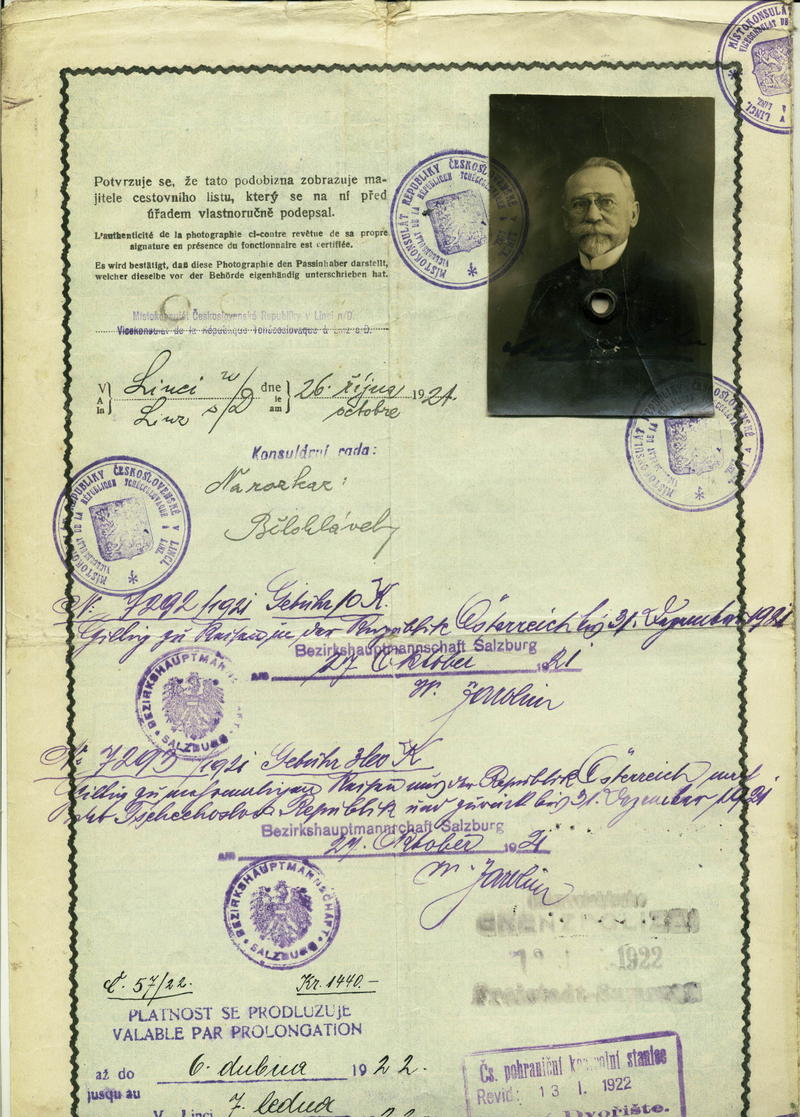 MÍSTOKONSULÁT
Potvrzuje se, že tato podobizna zobrazuje ma-
jitele cestovního listu, který se na ní před
úřadem vlastnoručně podepsal.
L'authenticité de la photographie ci-contre revêtue de sa propre
signature en présence du fonctionnaire est certifiée.
Es wird bestätigt, daß diese Photographie den Passinhaber darstellt,
welcher dieselbe vor der Behörde eigenhändig unterschrieben hat.
MÍSTOKONSULÁT REPUBLIKY ČESKOSLOVENSKÉ V LINCI
VICECONSULAT DE LA RÉPUBLIQUE TCHÉCOSLOVAQUE À LINZ
Místokonsulát Československé Republiky v Linci n/D.
Vicekonsulat de la République Tchécoslovaque à Linz s/D.
V
A
in
Linci n/D
Linz s/D
dne
le
am
26. října 1921.
octobre
Konsulární rada:
MÍSTOKONSULÁT REPUBLIKY ČESKOSLOVENSKÉ V LINCI
VICECONSULAT DE LA RÉPUBLIQUE TCHÉCOSLOVAQUE À LINZ
Nr. 7292/1921 Gebühr 10 K.
Gültig zu Reisen in der Republik Österreich bis 31. Dezember 1921
Bezirkshauptmannschaft Salzburg
am 27 Oktober 1921
BEZIRKSHAUPTMANNSCHAFT SALZBURG
Nr. 7293/1921 Gebühr K
Gültig zu Reisen aus der Republik Österreich nach
der Tschechoslov. Republik und zurück bis 31. Dezember 1921
Bezirkshauptmannschaft Salzburg
am 27. Oktober 1921
BEZIRKSHAUPTMANNSCHAFT SALZBURG
1922
Č. 57/22. Kr. 1440.–
PLATNOST SE PRODLUŽUJE
VALABLE PAR PROLONGATION
až do 6. dubna 1922.
jusqu au
V Linci 7. ledna
Čs. pohraniční kontrolní stanice
Revid: 13 I. 1922
Dvořiště.